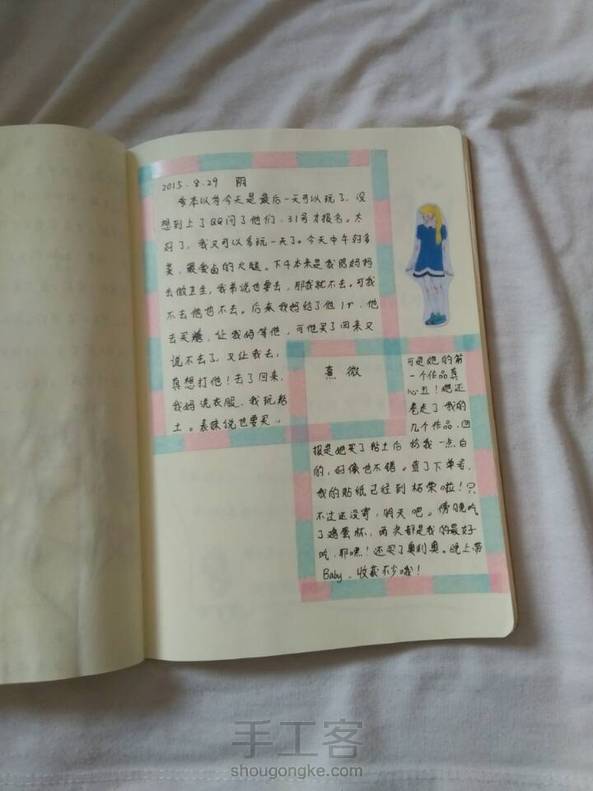 2015.8.29 阴
今本以为今天是最后一天可以玩了,没
想到上了QQ问了他们,31号才报名。太
好了,我又可以多玩一天了。今天中午好多
菜,最爱卤的火腿。下午本来是我跟妈妈
去做卫生,我爸说也要去,那我就不去。可我
不去他也不去。后来我妈给了他1r,他
去买,让我妈等他,可他买了回来又
说不去了,又让我去,
真想打他!去了回来,
我妈洗衣服,我玩粘
土。表妹说也要买,
熹微
可是她的第
一个作品真
心丑!她还
卷走了我的
几个作品,回
报是她买了粘土后给我一点白
的,好像也不错。查了下单号,
我的贴纸已经到桔荣啦!只
不过还没寄,明天吧。傍晚吃
了鸡蛋杯,两夹都是我的最好
吃,耶嘿!还买了奥利奥。晚上带
Baby,收获不少哦!
手工客
shougongke.com